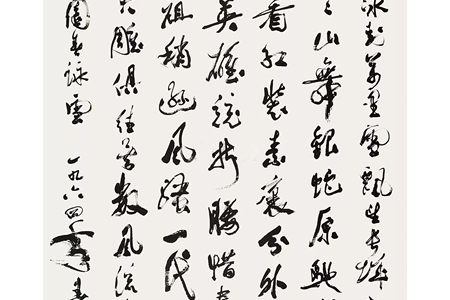 冰封萬里雪飄望長城
山舞銀蛇原馳
看紅裝素裹分外
英雄競折腰惜
祖稍遜風騷一代
大雕俱往矣數風流
園春詠雪 一九六四年春